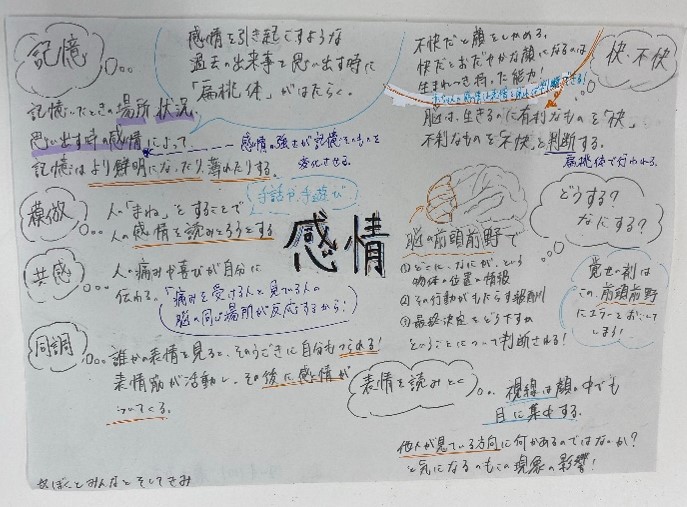 記憶
感情を引き起こすような
過去の出来事を思い出す時に
「扁桃体」がはたらく。
記憶したときの場所、状況、
思い出す時の感情によって、
記憶はより鮮明になったり、薄れたりする。
感情の強さが記憶そのものを
変化させる。
快・不快
不快だと顔をしかめる。
快だとおだやかな顔になるのは
生まれつき持った能力!
脳は、生きるのに有利なものを「快」
不利なものを「不快」と判断する。
扁桃体で行われる。
模倣
人の「まね」をすることで
人の感情を読みとろうとする
手話や手遊び
感情
共感
人の痛みや喜びが自分に
伝わる。
「痛みを受ける人と見ている人の
脳の同じ場所が反応するから!
同調
誰かの表情を見ると、そのうごきに自分もつられる!
表情筋が活動し、その後に感情が
ついてくる。
どうする?
なにする?
脳の前頭前野で
①どこに、なにが、という
物体の位置の情報
②その行動がもたらす報酬
③最終決定をどう下すか
ということについて判断される!
覚せい剤は
この前頭前野
にエラーをおこして
しまう!
表情を読みとく
視線は顔の中でも
目に集中する。
他人が見ている方向に何かあるのではないか?
と気になるのもこの現象の影響!
ぼくとみんなとそしてきみ